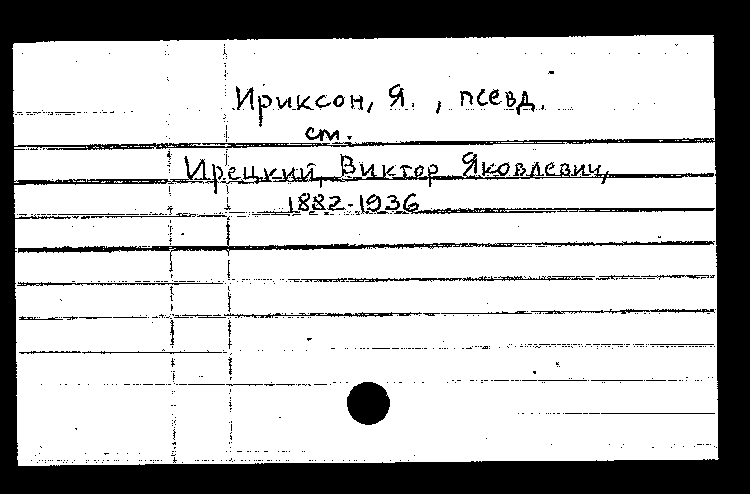 Ириксон, Я. , псевд.
см.
Ирецкий, Виктор Яковлевич,
1882-1936